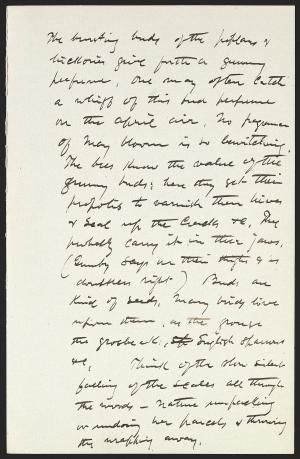 The bursting buds of the poplars &
hickories give forth a gummy
perfume, One may often catch
a whiff of this bud perfume
on the April air, No fragrance
of May bloom is so bewitching.
The bees know the value of the
gummy buds; here they get their
propolis to varnish their hives
& seal up the cracks &c, They
probably carry it in their jaws.
(Burnby says on their thighs & is
doubtless right) Buds are
kind of seeds, Many birds live
upon them, as the grouse
the grosbeak, English sparrows
&c, Think of the slow silent
falling of the scales all through
the woods — Nature unpacking
or undoing her parcels, & throwing
the wrapping away.